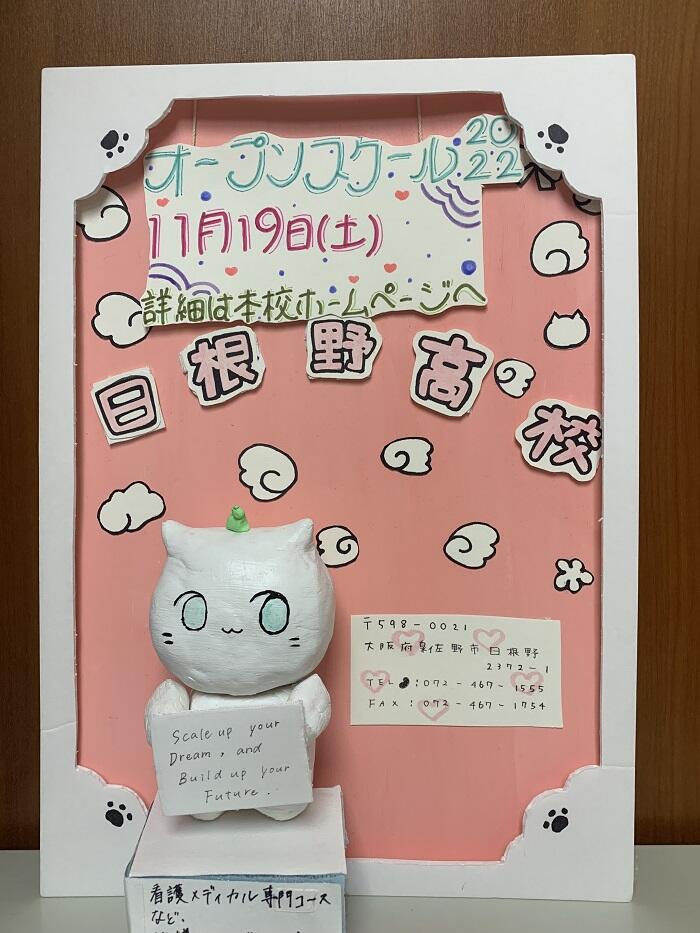 オープンスクール 2022
11月19日(土)
詳細は本校ホームページへ
日根野高校
〒598-0021
大阪府泉佐野市日根野
2372-1
TEL:072-467-1555
FAX:072-467-1754
Scale up your
Dream, and
Build up your
Future.
看護メディカル専門コース
など、